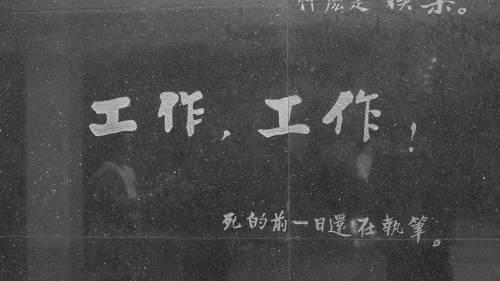 什麽是 快樂。
工作，工作！
死的前一日還在執筆。